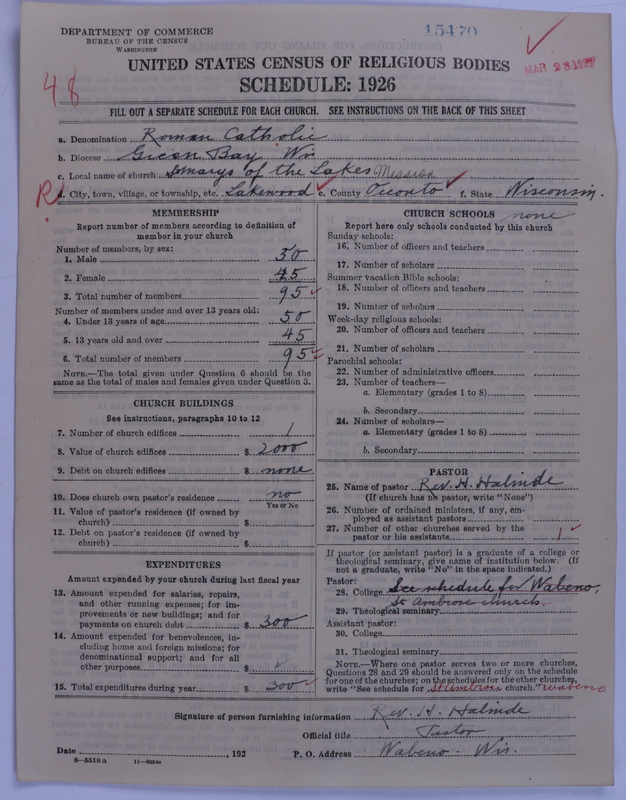 DEPARTMENT OF COMMERCE
BUREAU OF THE CENSUS
WASHINGTON
15470
MAR 28 1927
UNITED STATES CENSUS OF RELIGIOUS BODIES
SCHEDULE: 1926
48
FILL OUT A SEPARATE SCHEDULE FOR EACH CHURCH. SEE INSTRUCTIONS ON THE BACK OF THIS SHEET
a. Denomination Roman Catholic
b. Diocese Green Bay Wis
c. Local name of church St marys of the Lakes Mission
R
d. City, town, village, or township, etc. Lakewood e. County Oconto f. State Wisconsin.
MEMBERSHIP
Report number of members according to definition of
member in your church
Number of members, by sex:
1. Male 50
2. Female 45
3. Total number of members 95
Number of members under and over 13 years old:
4. Under 13 years of age 50
5. 13 years old and over 45
6. Total number of members 95
NOTE.—The total given under Question 6 should be the
same as the total of males and females given under Question 3.
CHURCH BUILDINGS
See instructions, paragraphs 10 to 12
7. Number of church edifices 1
8. Value of church edifices $ 2000
9. Debt on church edifices $ none
10. Does church own pastor's residence no
Yes or No
11. Value of pastor's residence (if owned by
church) $
12. Debt on pastor's residence (if owned by
church) $
EXPENDITURES
Amount expended by your church during last fiscal year
13. Amount expended for salaries, repairs,
and other running expenses; for im-
provements or new buildings; and for
payments on church debt $ 300
14. Amount expended for benevolences, in-
cluding home and foreign missions; for
denominational support; and for all
other purposes $
15. Total expenditures during year $ 300
CHURCH SCHOOLS none
Report here only schools conducted by this church
Sunday schools:
16. Number of officers and teachers
17. Number of scholars
Summer vacation Bible schools:
18. Number of officers and teachers
19. Number of scholars
Week-day religious schools:
20. Number of officers and teachers
21. Number of scholars
Parochial schools:
22. Number of administrative officers
23. Number of teachers—
a. Elementary (grades 1 to 8)
b. Secondary
24. Number of scholars—
a. Elementary (grades 1 to 8)
b. Secondary
PASTOR
25. Name of pastor Rev. H. Halinde
(If church has no pastor, write "None")
26. Number of ordained ministers, if any, em-
ployed as assistant pastors
27. Number of other churches served by the
pastor or his assistants 1
If pastor (or assistant pastor) is a graduate of a college or
theological seminary, give name of institution below. (If
not a graduate, write "No" in the space indicated.)
Pastor:
28. College See schedule for Wabeno.
St Ambrose church.
29. Theological seminary
Assistant pastor:
30. College
31. Theological seminary
NOTE.—Where one pastor serves two or more churches,
Questions 28 and 29 should be answered only on the schedule
for one of the churches; on the schedules for the other churches,
write "See schedule for St Ambrose church." Wabeno
Signature of person furnishing information Rev. H. Halinde
Official title Pastor
Date , 192 P. O. Address Wabeno. Wis.
8—5518a 11—9084a